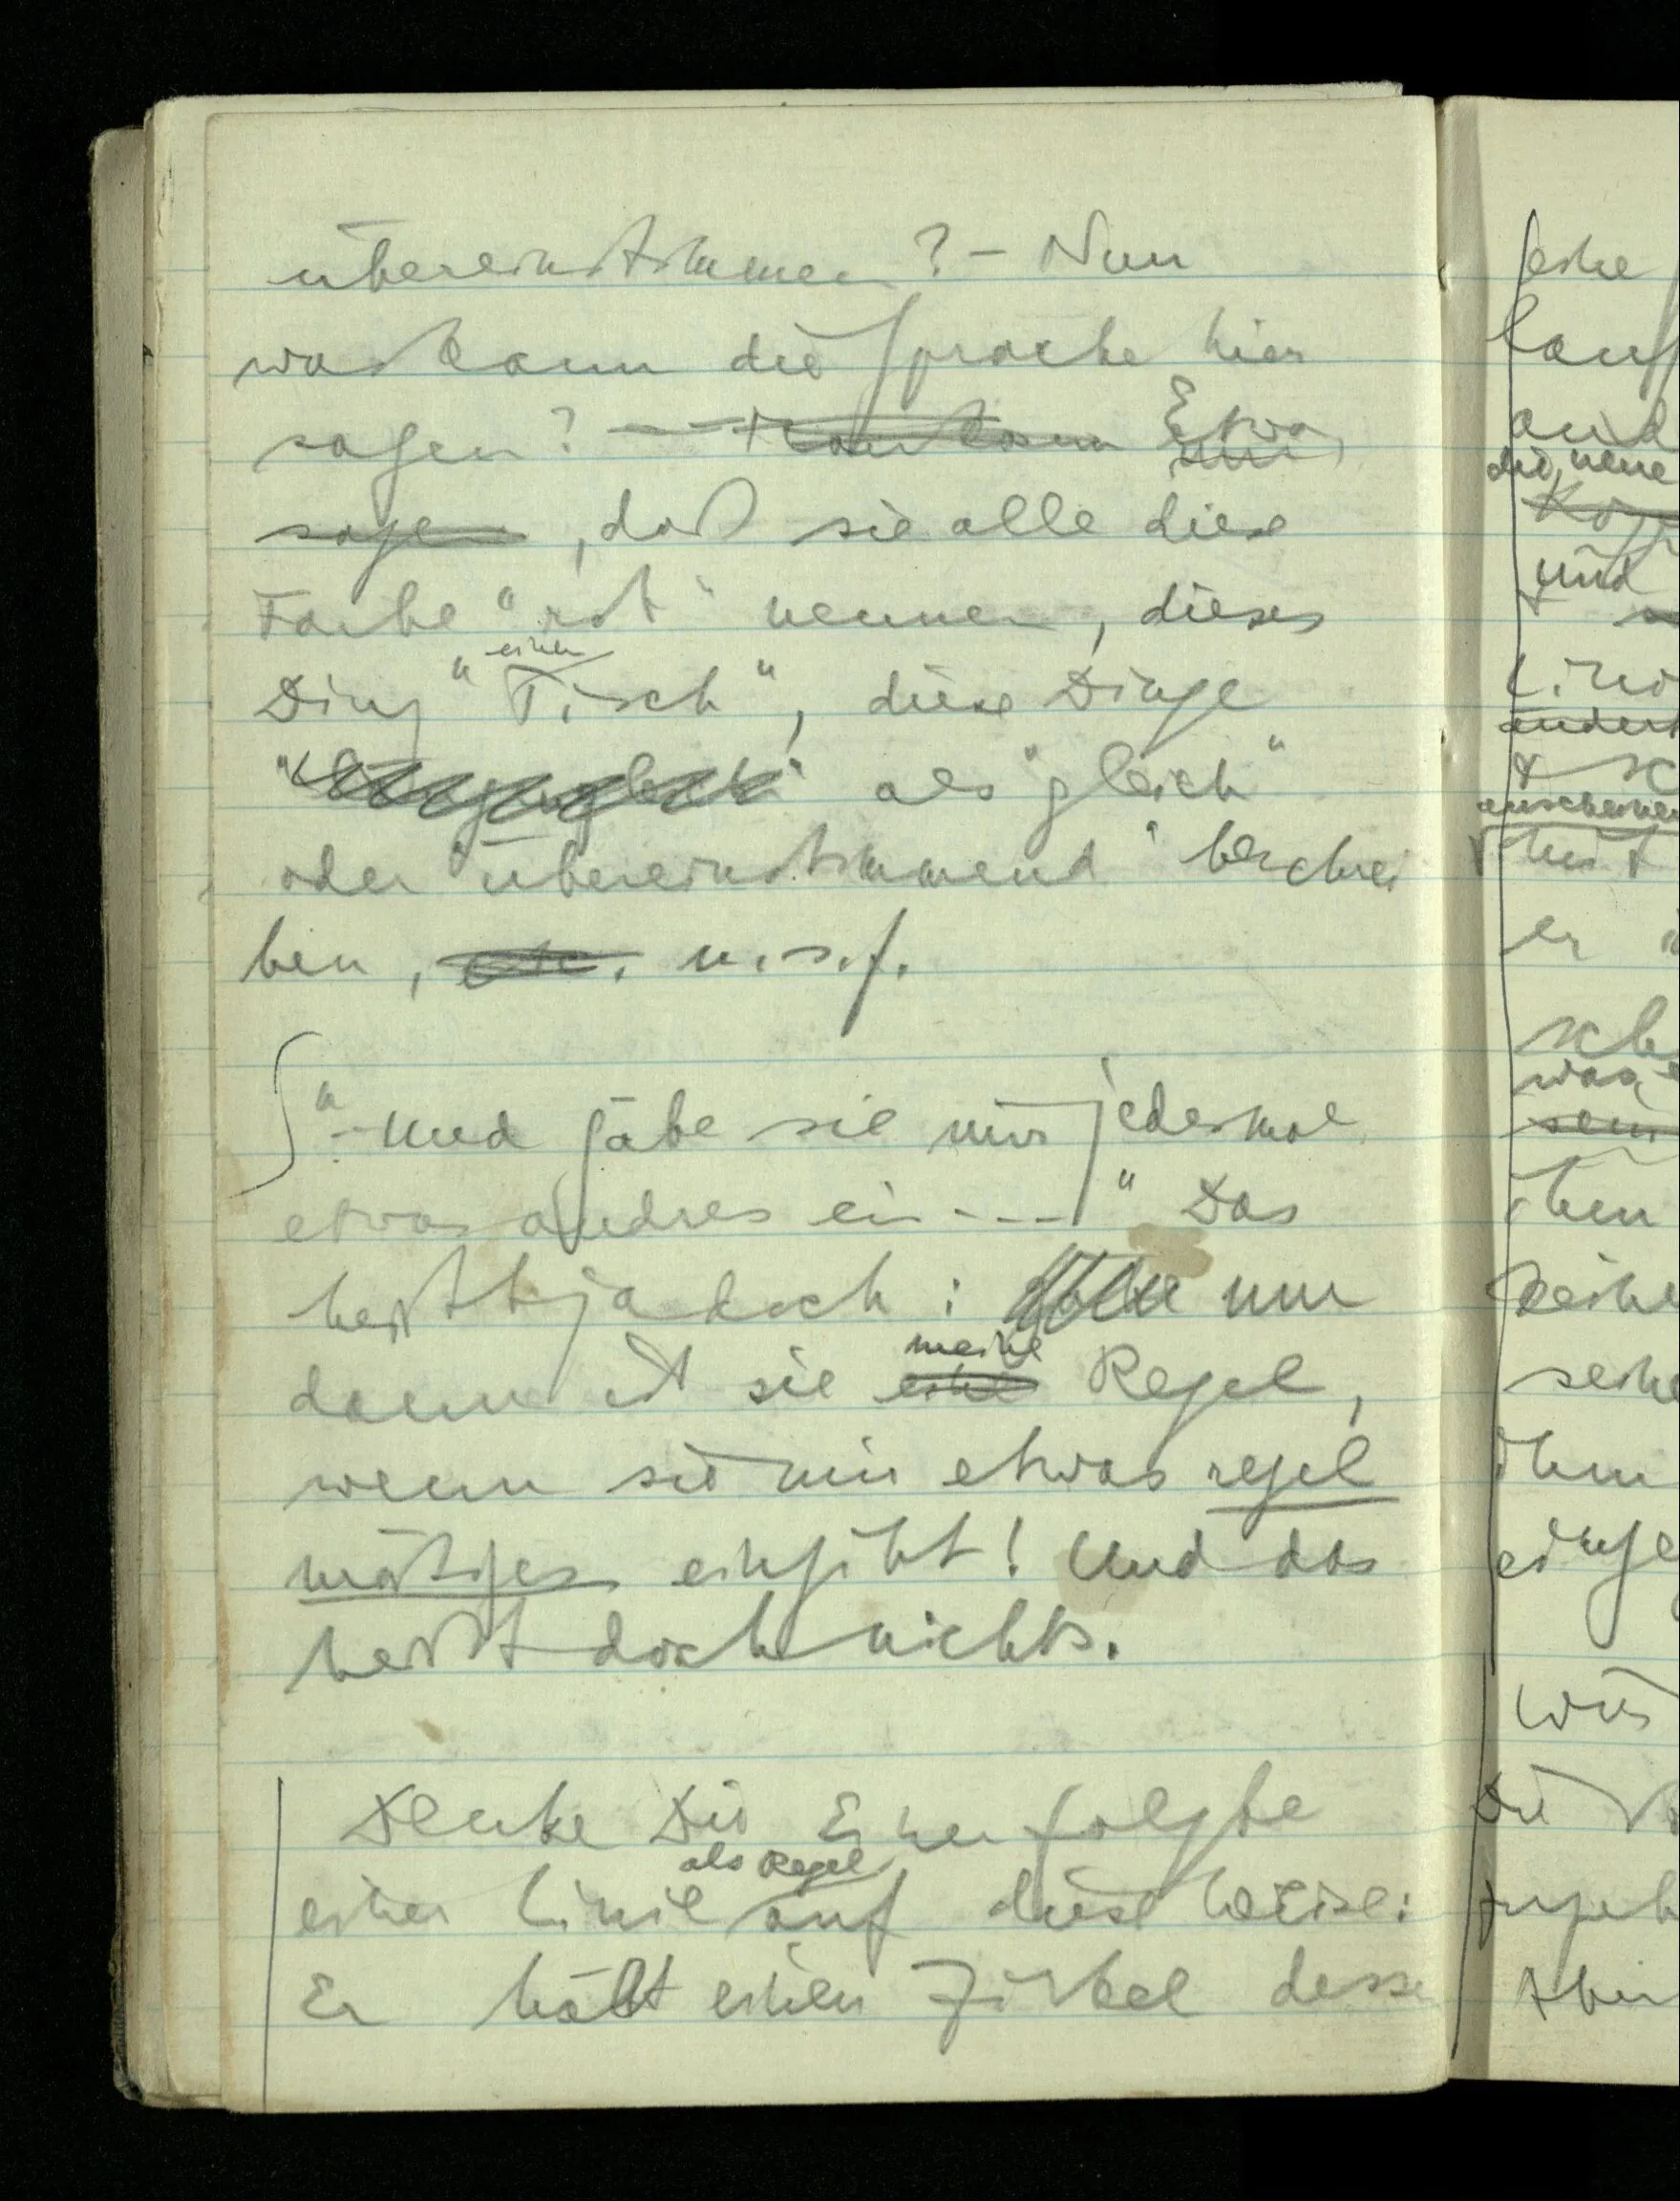 übereinstimmen? – Nun
was kann die Sprache hier
sagen? – – Man kann Etwa
sagen, daß sie alle diese
Farbe "rot" nennen, dieses
Ding "einen Tisch", diese Dinge
als "gleich"
oder "übereinstimmend" beschrei
ben, etc. u.s.f.
"Und gäbe sie mir jedesmal
etwas andres ein – – –" Das
heißt ja doch: nur
dann ist sie eine meine Regel,
wenn sie mir etwas regel
mäßiges eingibt! Und das
heißt doch nichts.
Denke Dir Einer folgte
einer Linie als Regel auf diese Weise:
Er hält einen Zirkel desse
eine
die neue
und
er
was
seine
ihm